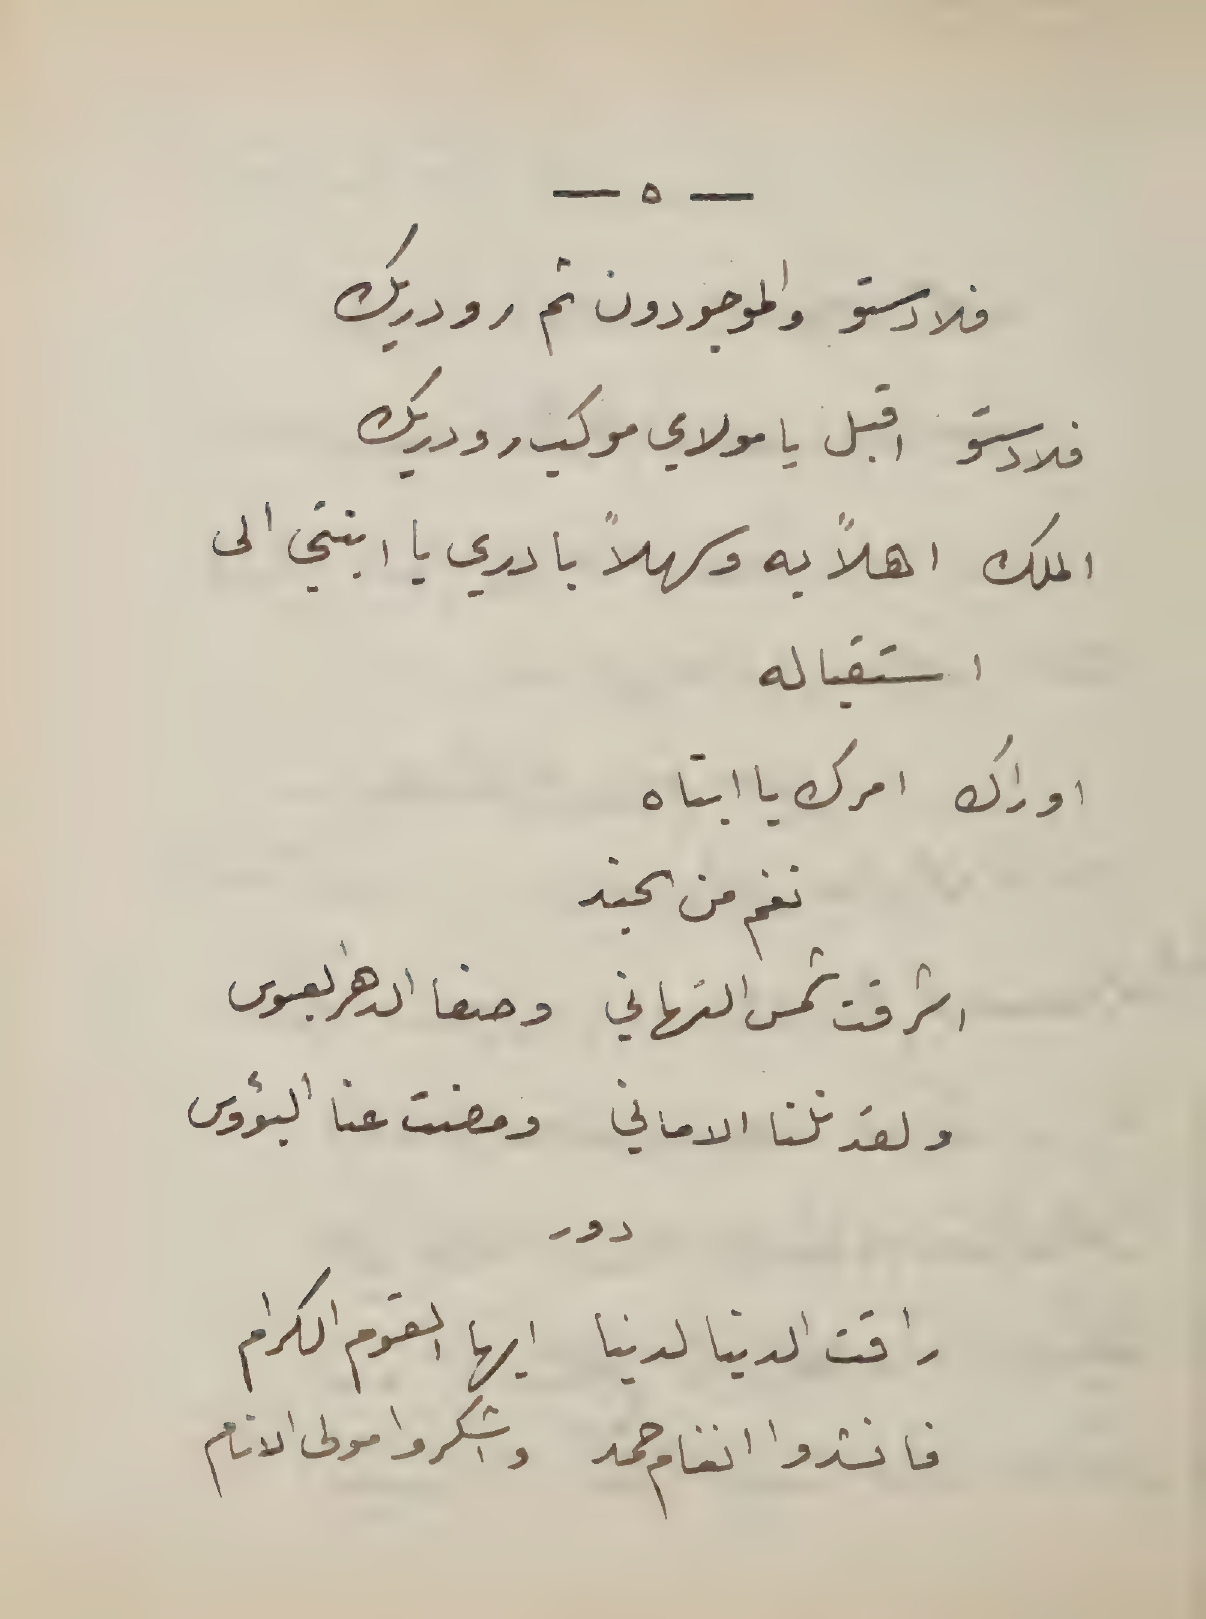 — ٥ —
فلادستو والموجودون ثم رودريك
فلادستو اقبل يا مولاي موكب رودريك
الملك اهلاً به وسهلاً بادري يا ابنتي الى
استقباله
اوراك امرك يا ابتاه
نغم من الجند
اشرقت شمس التهاني وصفا الدهر العبوس
ولقد نلنا الاماني ومضت عنا البؤوس
دور
راقت الدنيا لدينا ايها القوم الكرام
فانشدوا انغام حمد واشكروا مولى الانام